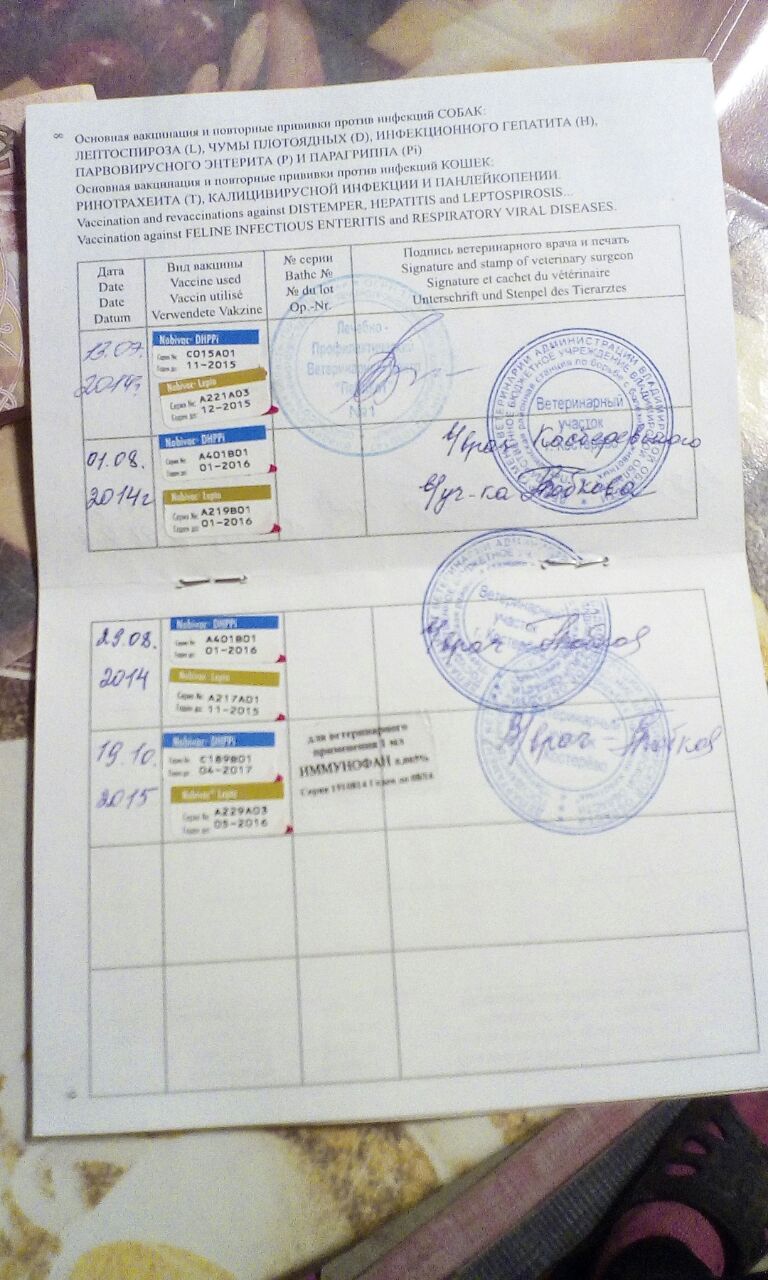 8
Основная вакцинация и повторные прививки против инфекций СОБАК:
ЛЕПТОСПИРОЗА (L), ЧУМЫ ПЛОТОЯДНЫХ (D), ИНФЕКЦИОННОГО ГЕПАТИТА (H),
ПАРВОВИРУСНОГО ЭНТЕРИТА (P) И ПАРАГРИППА (Pi)
Основная вакцинация и повторные прививки против инфекций КОШЕК:
РИНОТРАХЕИТА (T), КАЛИЦИВИРУСНОЙ ИНФЕКЦИИ И ПАНЛЕЙКОПЕНИИ.
Vaccination and revaccinations against DISTEMPER, HEPATITIS and LEPTOSPIROSIS...
Vaccination against FELINE INFECTIOUS ENTERITIS and RESPIRATORY VIRAL DISEASES.
Дата
Date
Date
Datum
Вид вакцины
Vaccine used
Vaccin utilisé
Verwendete Vakzine
№ серии
Bathc №
№ du lot
Op.-Nr.
Подпись ветеринарного врача и печать
Signature and stamp of veterinary surgeon
Signature et cachet du vétérinaire
Unterschrift und Stempel des Tierarztes
2014г
Nobivac DHPPi
Серия № C015A01
Годен до: 11-2015
Nobivac Lepto
Серия № A221A03
Годен до: 12-2015
Лечебно-
Профилактический
№1
Ветеринарный
участок
01.08.
2014г
Nobivac DHPPi
Серия № A401B01
Годен до: 01-2016
Nobivac Lepto
Серия № A219B01
Годен до: 01-2016
29.08.
2014
Nobivac DHPPi
Серия № A401B01
Годен до: 01-2016
Nobivac Lepto
Серия № A217A01
Годен до: 11-2015
Ветеринарный
участок
В/врач
19.10.
2015
Nobivac DHPPi
Серия № C189B01
Годен до: 04-2017
Nobivac Lepto
Серия № A229A03
Годен до: 05-2016
для ветеринарного
применения 1 мл
ИММУНОФАН
В/врач